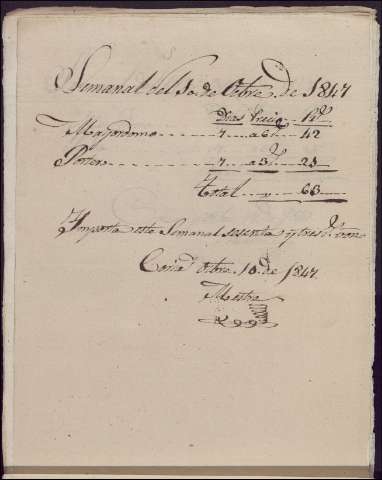 Semanal del 10 de Otbre. de 1847
Dias Precio Rs.
Mayordomo 7. a6 rs. 42
Portero 7. a3 rs. 21
Total 63
Importa este Semanal sesenta y tres rs. von.
Coria Otbre. 10 de 1847.
Mestre